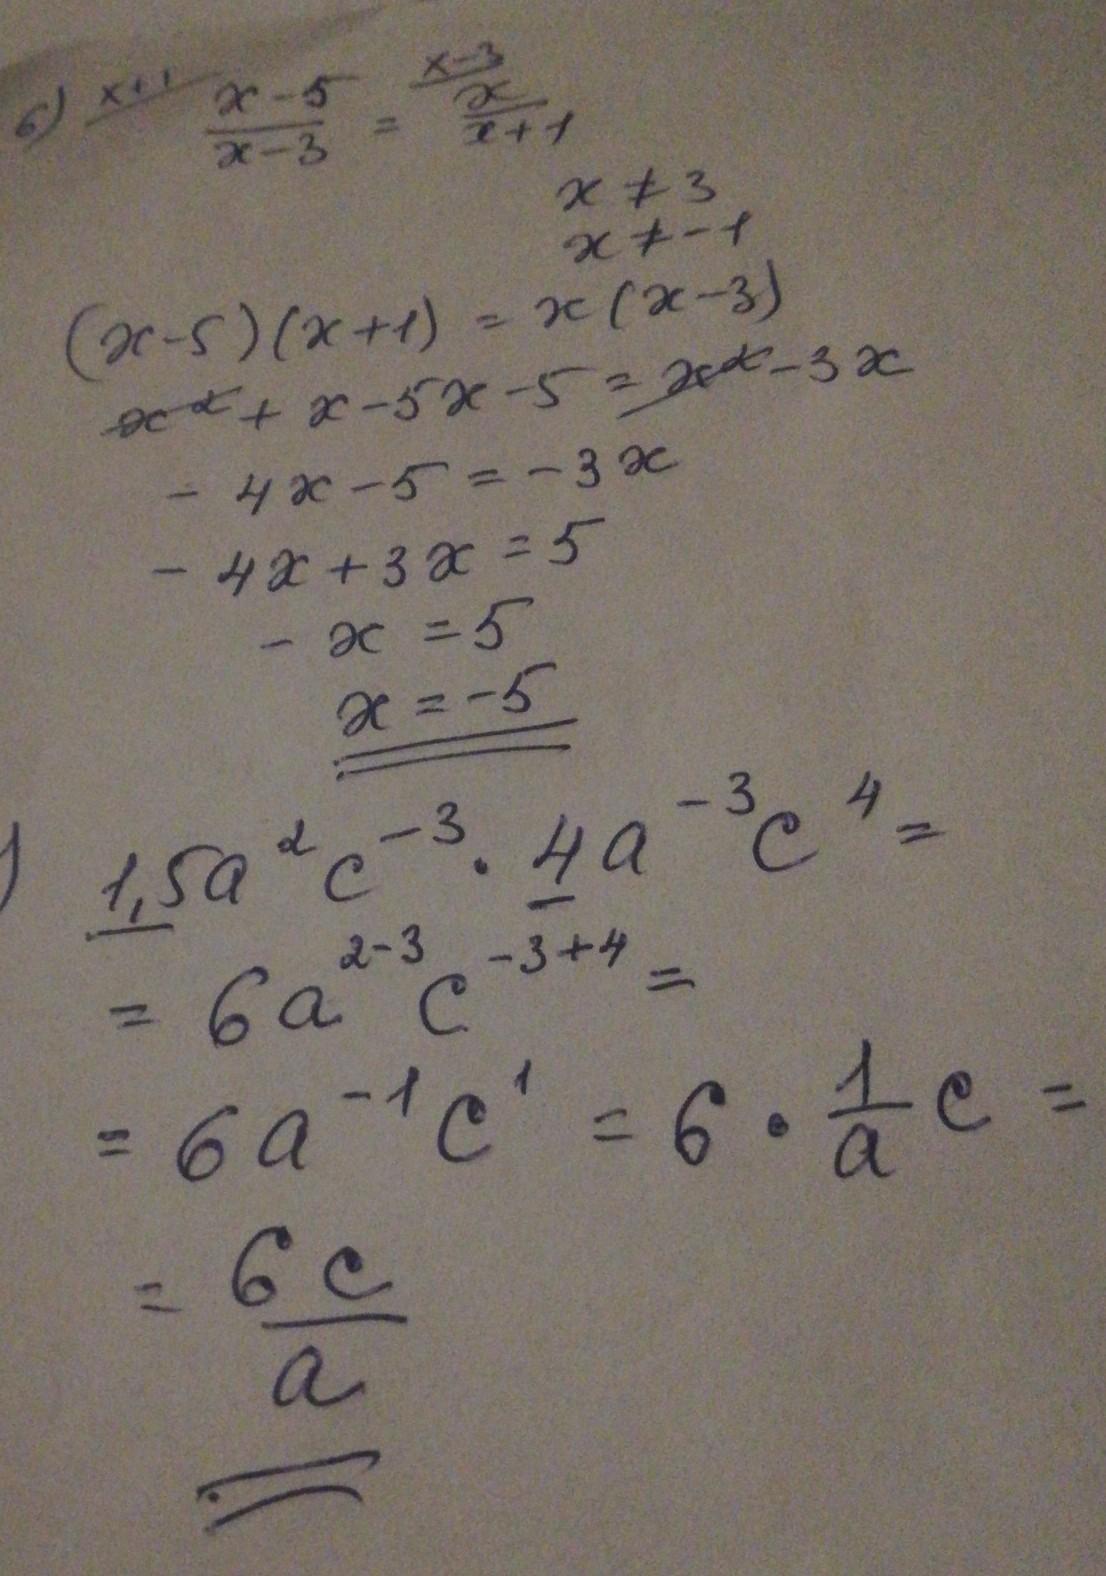 б) x+1 x-5/x-3 = x-3 x/x+1
x ≠ 3
x ≠ -1
(x-5)(x+1) = x(x-3)
x² + x - 5x - 5 = x² - 3x
- 4x - 5 = - 3x
- 4x + 3x = 5
- x = 5
x = -5
) 1,5a²c⁻³ · 4a⁻³c⁴ =
= 6a²⁻³c⁻³⁺⁴ =
= 6a⁻¹c¹ = 6 · 1/a c =
= 6c/a